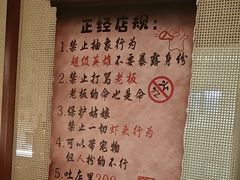 正经店规:
1.禁止抽象行为
超级英雄不要暴露身份
2.禁止打骂老板
老板的命也是命
3.保护姑娘
禁止一切虾头行为
4.可以带宠物
但人扮的不行
5.吐店里200